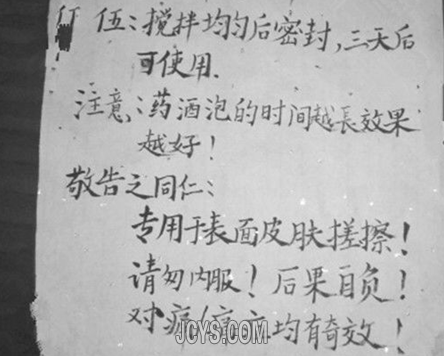 伍：搅拌均匀后密封，三天后
可使用.
注意：药酒泡的时间越長效果
越好！
敬告之同仁：
专用于表面皮肤搓擦！
请勿内服！后果自负！
对痛 均有奇效！
JCYS.COM